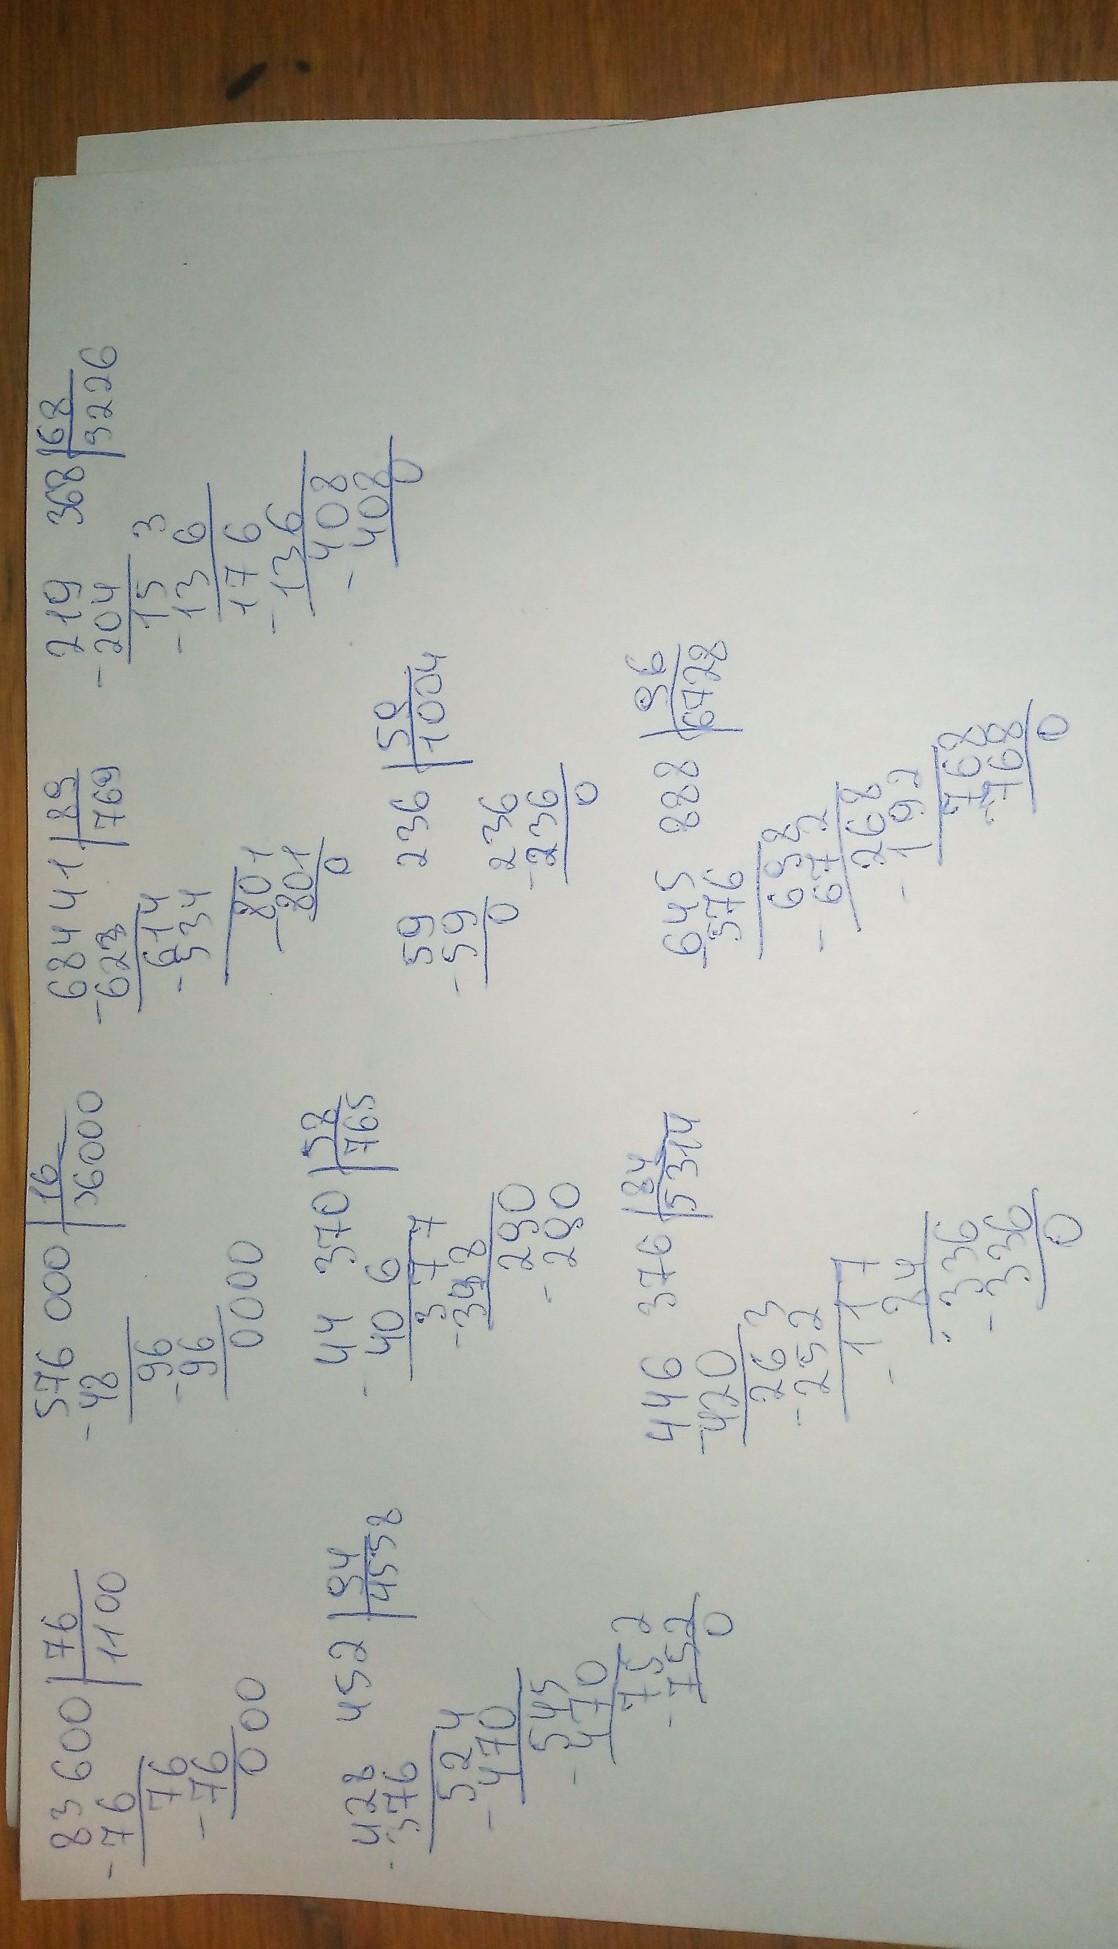 83 600 | 76
- 76 | 1100
76
- 76
000
576 000 | 16
- 48 | 36000
96
- 96
0000
68441 | 89
- 623 | 769
614
- 534
801
- 801
0
219 368 | 68
- 204 | 3226
15 3
- 13 6
176
- 136
408
- 408
0
428 452 | 94
- 376 | 4558
524
- 470
545
- 470
752
- 752
0
44 370 | 58
- 40 6 | 765
3 7 7
- 348
290
- 290
59 236 | 59
- 59 | 1004
0 236
- 236
0
446 376 | 84
- 420 | 5314
26 3
- 252
117
- 24
336
- 336
0
645 888 | 96
- 576 | 6728
698
- 672
268
- 192
768
- 768
0